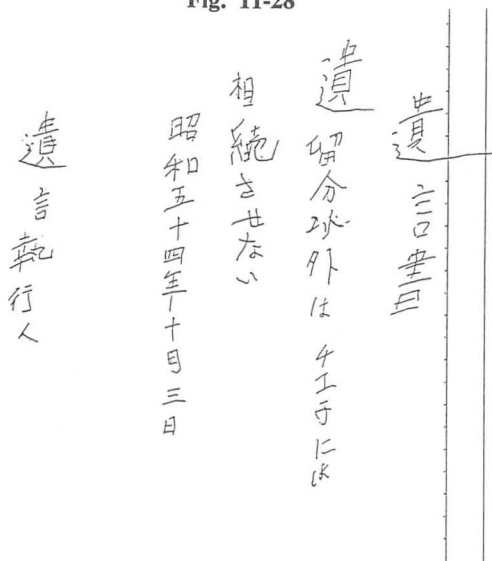 Fig. 11-28
遺言書
遺留分以外はチエ子には
相続させない
昭和五十四年十月三日
遺言執行人